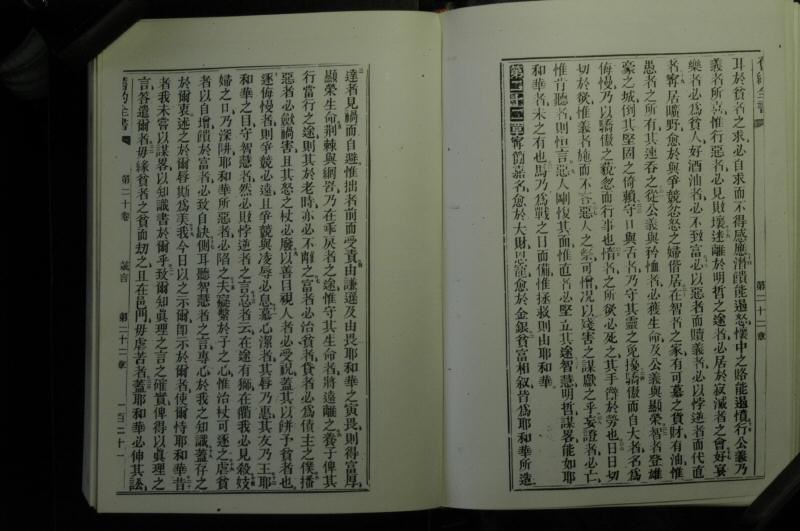 舊約全書
第二十二章
耳於貧者之求必自求而不得感應潛饋能遏怒懷中之賂能遏憤行公義乃
義者所喜惟行惡者必見敗壞迷離於明哲之途者必居於寂滅者之會好宴
樂者必為貧人好酒油者必不致富必以惡者而贖義者必以悖逆者而代直
者寧居曠野愈於與爭競忿怒之婦偕居在智者之家有可慕之貨財有油惟
愚者之所有其速吞之從公義與矜恤者必獲生命及公義與顯榮智者登雄
豪之城倒其堅固之倚賴守口與舌者乃守其靈之免擾驕傲而自大者名為
侮慢乃以驕傲之貌忿而行事也惰者之所欲必死之其手齊於勞也日日
切於欲惟義者施而不吝惡人之祭可憎况以殘害之謀獻之乎妄證者必亡
惟肯聽者則恒言惡人剛愎其面惟直者必堅立其途智慧明哲謀畧能如耶
和華者未之有也馬乃為戰之日而備惟拯救則由耶和華
第二十二章寧簡嘉名愈於大財恩寵愈於金銀貧富相叙皆為耶和華所造
達者見禍而自避惟拙者前而受責由謙遜及由畏耶和華之寅畏則得富厚
顯榮生命荊棘與網罟乃在乖戾者之途惟守其生命者將遠離之養子俾其
行當行之途則其於老時亦必不離之富者必治貧者貸者必為債主之僕播
惡者必斂禍害且其怒之杖必廢以善目視人者必受祝蓋其以餅予貧者也
逐侮慢者則爭競必遠且爭競與凌辱必息慕心潔者其唇乃惠其友乃王耶
和華之目守智慧者然必敗悖逆者之言怠者云在途有獅在衢我必見殺妓
婦之口乃深阱耶和華所惡者必陷之夫癡繫於子之心惟治杖可逐之虐貧
者以自增饋於富者必致自缺側耳聽智慧者之言專心於我之知識蓋存之
於爾衷述之於爾唇斯為美我今日以之示爾即示於爾者使爾恃耶和華昔
者我未嘗以謀畧以知識書於爾乎致爾知真理之言之確實俾得以真理之
言答遣爾者毋緣貧者之貧而劫之且在邑門毋虐苦者蓋耶和華必伸其訟
舊約全書
第二十卷
箴言
第二十二章
一百二十一